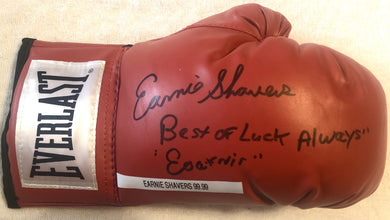 EVERLAST
Earnie Shavers
Best of Luck Always"
EARNIE SHAVERS 99.99